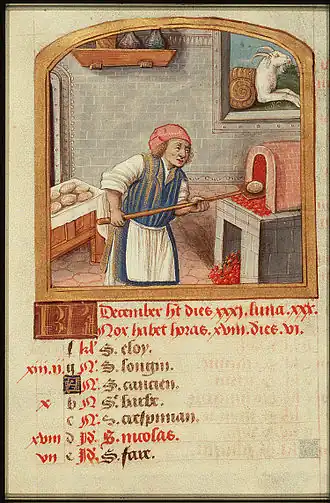 KL December ht dies xxxi. luna. xxx.
Nox habet horas. xviii. dies. vi.
f kl S. eloy.
xiii. ii. g N S. longin.
A N S. cancien.
x b N S. barbe.
c N S. crespinian.
xviii d Id. S. nicolas.
vii e Id. S. fare.